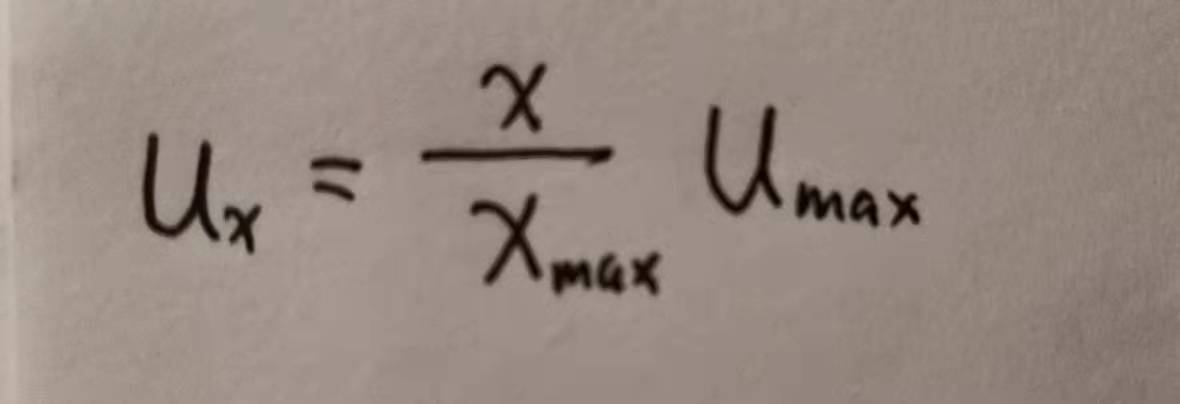 U_x = \frac{x}{x_{max}} U_{max}